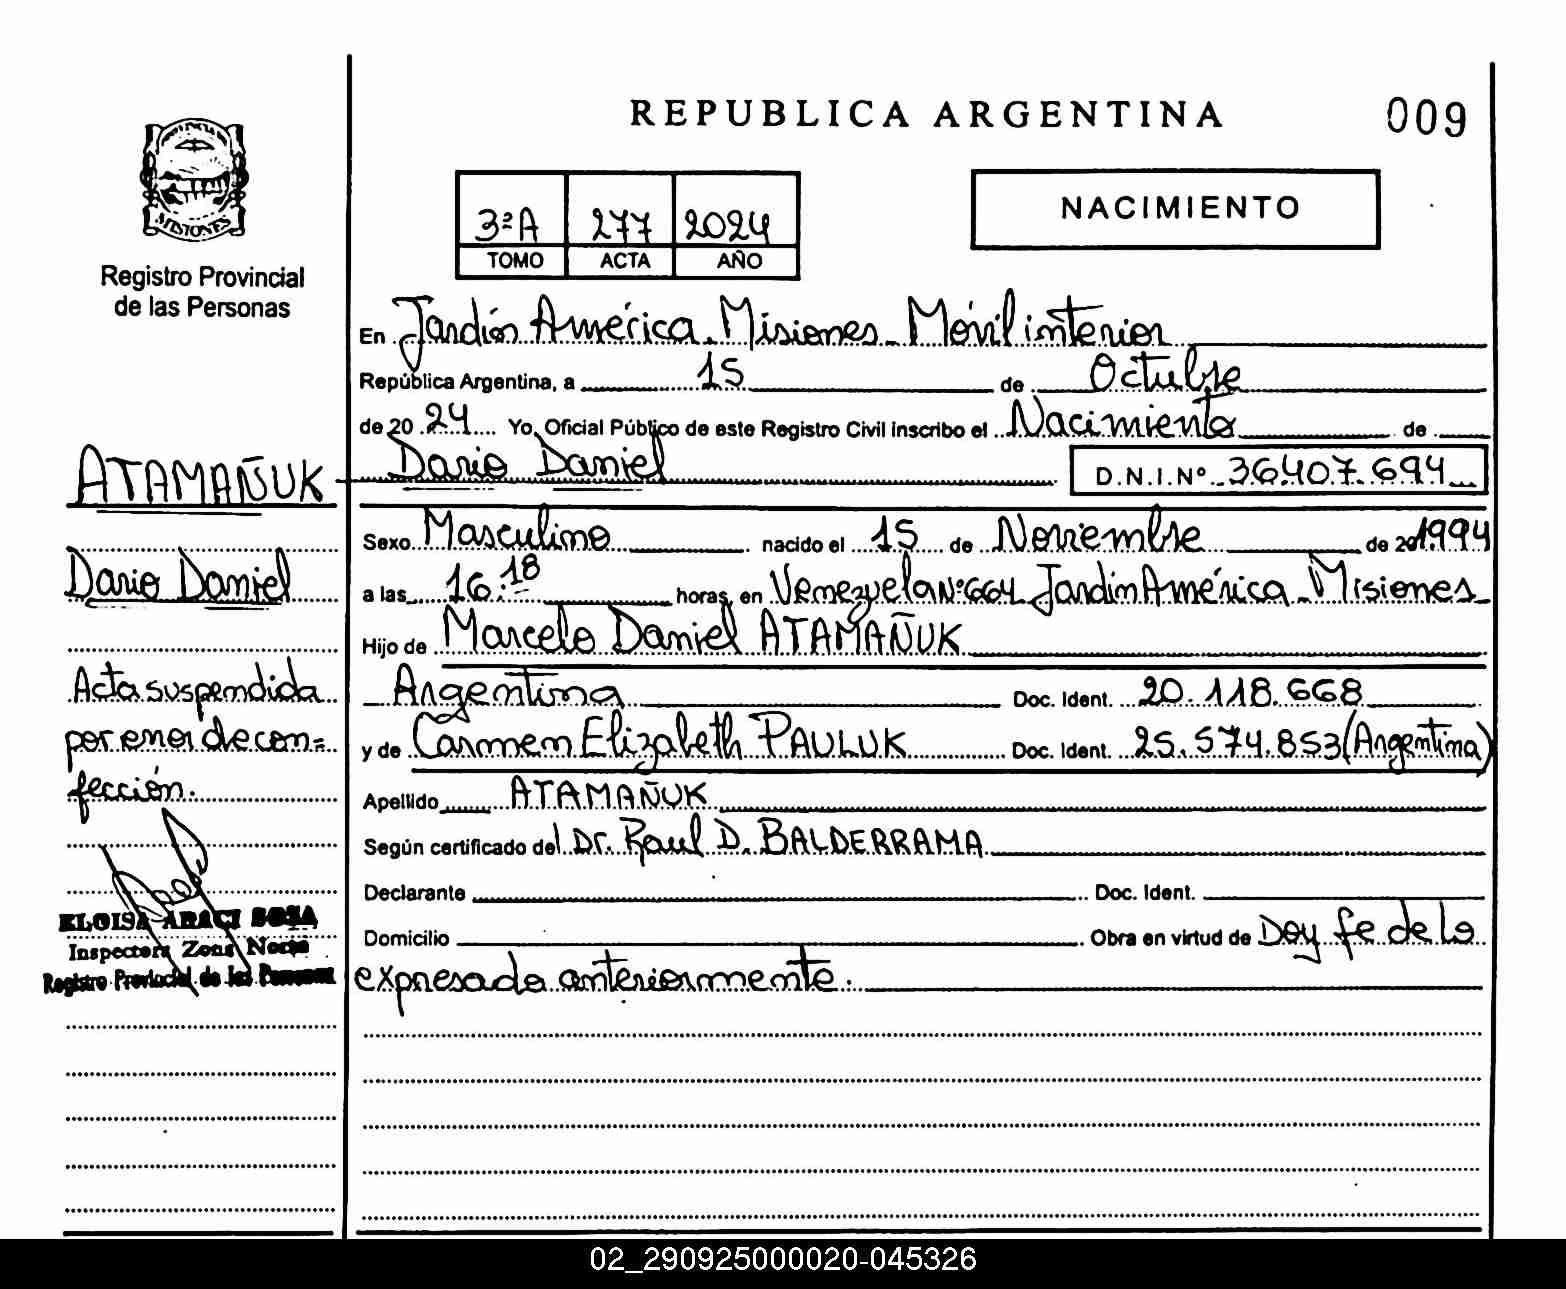 REPUBLICA ARGENTINA
009
PROVINCIA DE
MISIONES
Registro Provincial
de las Personas
3ªA 277 2024
TOMO ACTA AÑO
NACIMIENTO
En Jardín América. Misiones. Móvil interior
República Argentina, a 15 de Octubre
de 20 24 Yo, Oficial Público de este Registro Civil inscribo el Nacimiento de
Dario Daniel D.N.I.Nº 36.407.694
ATAMAÑUK
Dario Daniel
Acta suspendida
por error de con=
fección.
ELOISA ARACI SOSA
Inspectora Zona Norte
Registro Provincial de las Personas
Sexo Masculino nacido el 15 de Noviembre de 20 1994
a las 16:18 horas, en Venezuela Nº 664 Jardín América - Misiones -
Hijo de Marcelo Daniel ATAMAÑUK
Argentina Doc. Ident. 20.118.668
y de Carmen Elizabeth PAULUK Doc. Ident. 25.574.853 (Argentina)
Apellido ATAMAÑUK
Según certificado del Dr. Raul D. BALDERRAMA
Declarante Doc. Ident.
Domicilio Obra en virtud de Doy fe de lo
expresado anteriormente.
02_290925000020-045326